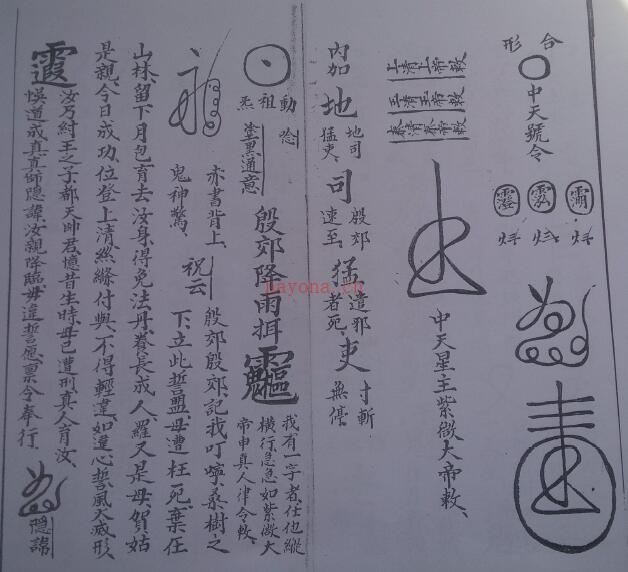 合形
中天號令
上清上帝敕
玉清玉帝敕
中天星主紫微大帝敕、
內加
地
地司
猛吏、
司
殷郊
速至、
猛
遣邪
者死、
吏
寸斬
無停
nayona.cn
動祖炁
念
塗黑通意
殷郊降雨
我有一字者任他縱
橫行急急如紫微大
帝申真人律令敕、
赤書背上、
鬼神驚、
祝云
殷郊殷郊、記我叮嚀、桑樹之
下、立此誓盟、母遭枉死、棄在
山林、留下月包育去汝身、得免法丹、養長成人、羅叉是母、賀姑
是親、今日成功、位登上清、絲縧付與、不得輕違、如違心誓、風火滅形、
汝乃紂王之子都天帥君憶昔生時、母已遭刑、真人育汝、
悞道成真、真師隱諱、汝親降臨、毋違誓愿、稟令奉行、
隱諱